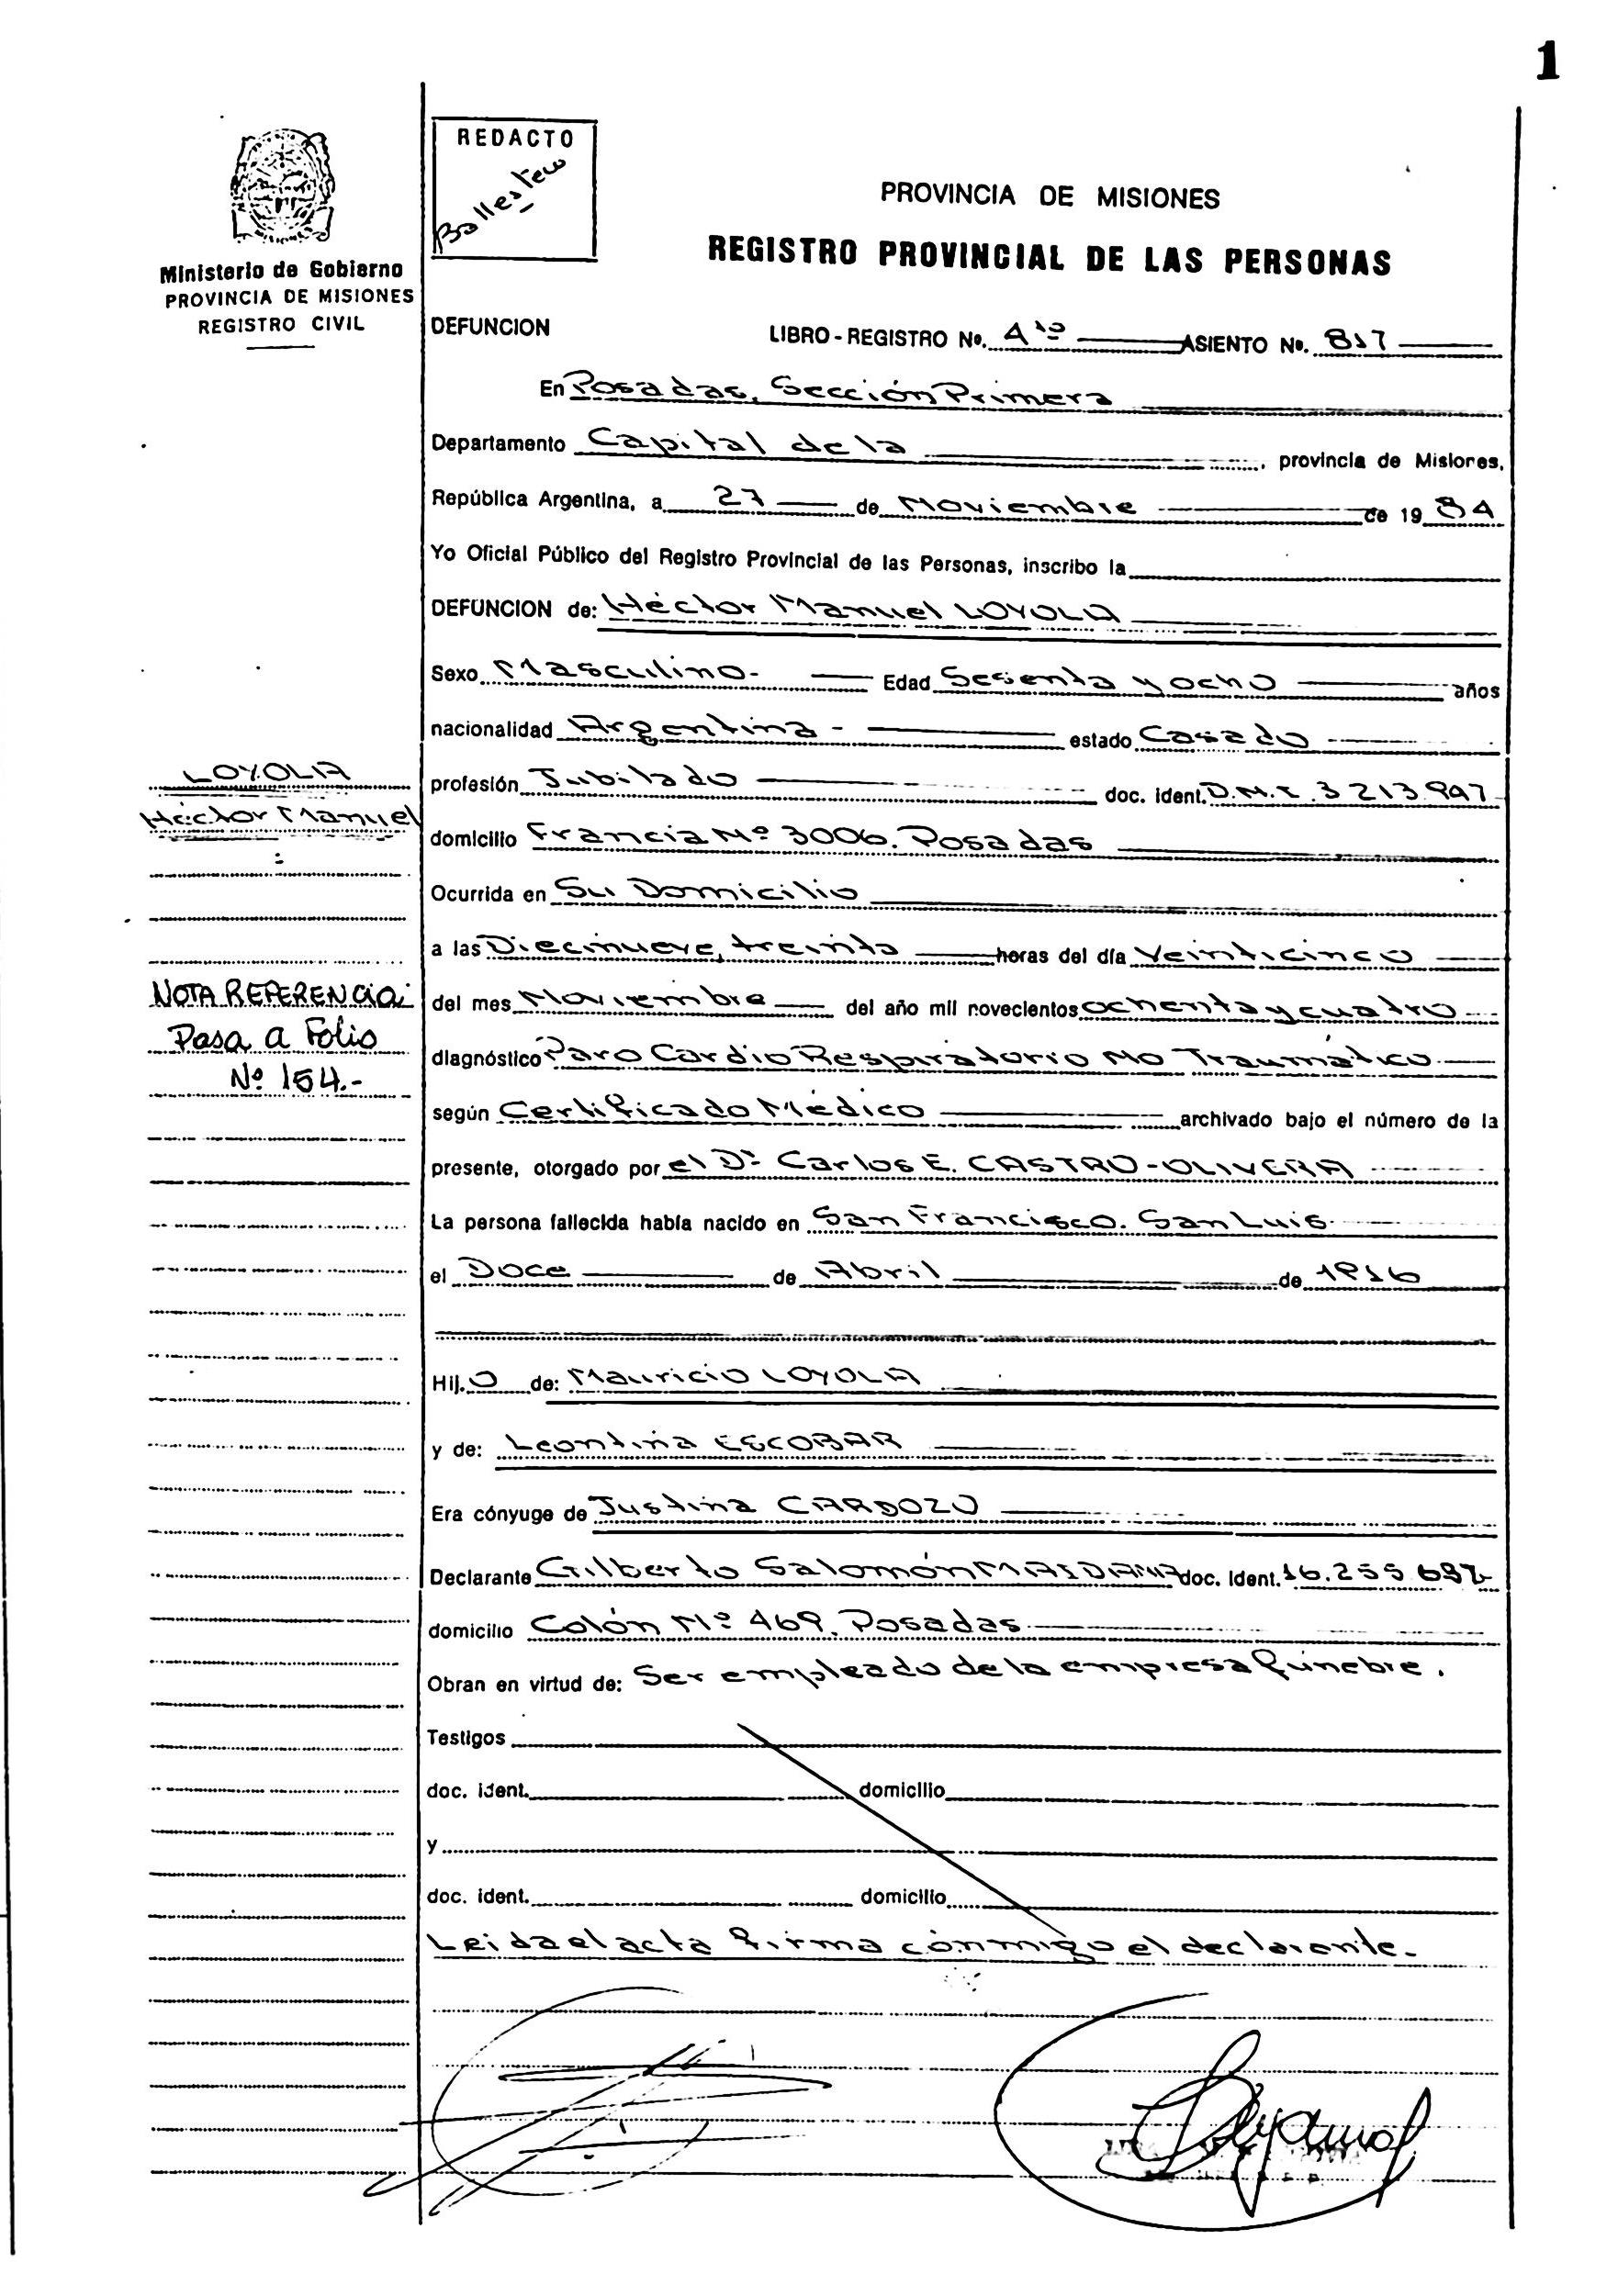 1
REDACTO
Ballestero
PROVINCIA DE MISIONES
REGISTRO PROVINCIAL DE LAS PERSONAS
Ministerio de Gobierno
PROVINCIA DE MISIONES
REGISTRO CIVIL
DEFUNCION LIBRO-REGISTRO Nº. 4to ASIENTO Nº. 817
En Posadas, Sección Primera
Departamento Capital de la , provincia de Misiones,
República Argentina, a 27 de Noviembre de 1984
Yo Oficial Público del Registro Provincial de las Personas, inscribo la
DEFUNCION de: Héctor Manuel LOYOLA
Sexo Masculino- Edad Sesenta y ocho años
nacionalidad Argentina - estado Casado
LOYOLA
Héctor Manuel
profesión Jubilado doc. ident. D.N.I. 3213997
domicilio Francia Nº 3006. Posadas
Ocurrida en Su Domicilio
a las Diecinueve, treinta horas del día Veinticinco
NOTA REFERENCIA:
Pasa a Folio
Nº 154.-
del mes Noviembre del año mil novecientos ochenta y cuatro
diagnóstico Paro Cardio Respiratorio No Traumático
según Certificado Médico archivado bajo el número de la
presente, otorgado por el Dr Carlos E. CASTRO-OLIVERA
La persona fallecida había nacido en San Francisco. San Luis
el Doce de Abril de 1916
Hij.o de: Mauricio LOYOLA
y de: Leontina ESCOBAR
Era cónyuge de Justina CARDOZO
Declarante Gilberto Salomón MAIDANA doc. ident. 16.255.697
domicilio Colón Nº 469. Posadas
Obran en virtud de: Ser empleado de la empresa fúnebre.
Testigos
doc. ident. domicilio
y
doc. ident. domicilio
Leida el acta firma conmigo el declarante.